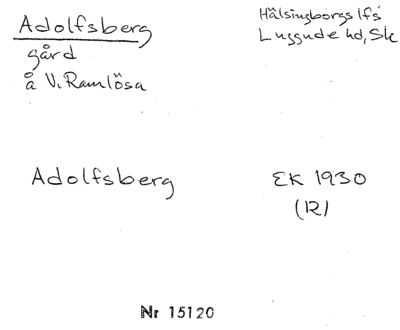 Adolfsberg
gård
å V. Ramlösa
Hälsingborgs lfs
Luggude hd, Sk
Adolfsberg
EK 1930
(R)
Nr 15120